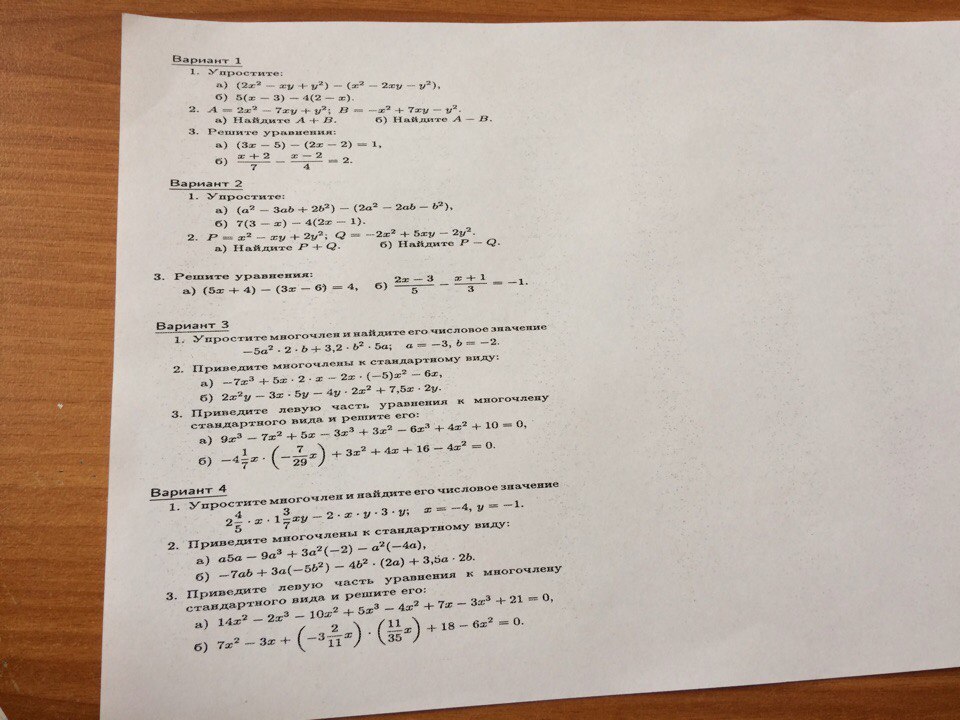 Вариант 1
1. Упростите:
а) (2x² − xy + y²) − (x² − 2xy − y²),
б) 5(x − 3) − 4(2 − x).
2. A = 2x² − 7xy + y²; B = −x² + 7xy − y².
а) Найдите A + B. б) Найдите A − B.
3. Решите уравнения:
а) (3x − 5) − (2x − 2) = 1,
б) (x + 2)/7 − (x − 2)/4 = 2.
Вариант 2
1. Упростите:
а) (a² − 3ab + 2b²) − (2a² − 2ab − b²),
б) 7(3 − x) − 4(2x − 1).
2. P = x² − xy + 2y²; Q = −2x² + 5xy − 2y².
а) Найдите P + Q. б) Найдите P − Q.
3. Решите уравнения:
а) (5x + 4) − (3x − 6) = 4, б) (2x − 3)/5 − (x + 1)/3 = −1.
Вариант 3
1. Упростите многочлен и найдите его числовое значение
−5a² · 2 · b + 3,2 · b² · 5a; a = −3, b = −2.
2. Приведите многочлены к стандартному виду:
а) −7x³ + 5x · 2 · x − 2x · (−5)x² − 6x,
б) 2x²y − 3x · 5y − 4y · 2x² + 7,5x · 2y.
3. Приведите левую часть уравнения к многочлену
стандартного вида и решите его:
а) 9x³ − 7x² + 5x − 3x³ + 3x² − 6x³ + 4x² + 10 = 0,
б) −4 1/7 x · (−7/29 x) + 3x² + 4x + 16 − 4x² = 0.
Вариант 4
1. Упростите многочлен и найдите его числовое значение
2 4/5 · x · 1 3/7 xy − 2 · x · y · 3 · y; x = −4, y = −1.
2. Приведите многочлены к стандартному виду:
а) a5a − 9a³ + 3a²(−2) − a²(−4a),
б) −7ab + 3a(−5b²) − 4b² · (2a) + 3,5a · 2b.
3. Приведите левую часть уравнения к многочлену
стандартного вида и решите его:
а) 14x² − 2x³ − 10x² + 5x³ − 4x² + 7x − 3x³ + 21 = 0,
б) 7x² − 3x + (−3 2/11 x) · (11/35 x) + 18 − 6x² = 0.